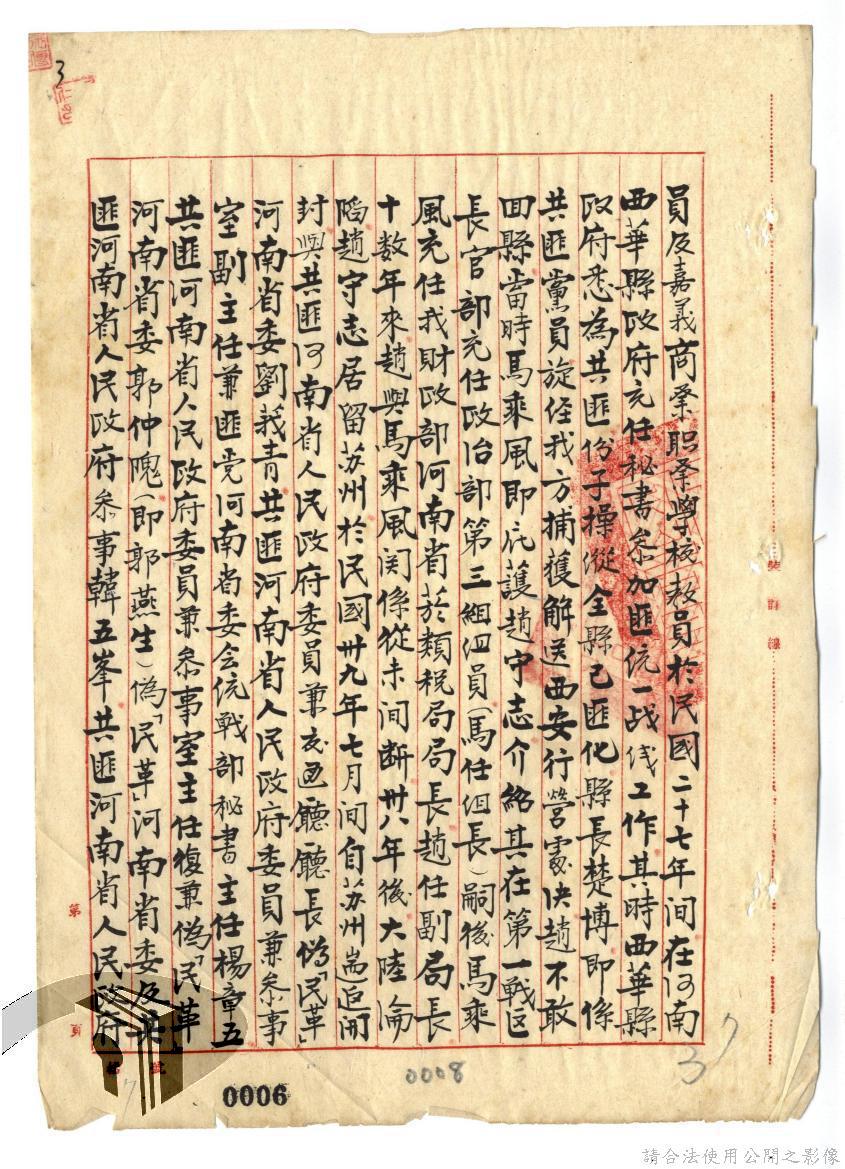 員及嘉義商業职業學校教員於民國二十七年間在河南
西華縣政府充任秘書參加匪統一战线工作其時西華縣
政府悉為共匪份子操縱全縣已匪化縣長楚博即係
共匪黨員旋経我方捕獲解送西安行營處决趙不敢
回縣當時馬乘風即庇護趙守志介紹其在第一戰区
長官部充任政治部第三組組員(馬任组長)嗣後馬乘
風充任我財政部河南省菸類税局局長趙任副局長
十数年來趙與馬乘風関係從未间断卅八年後大陸淪
陷趙守志居留苏州於民國卅九年七月间自苏州遄返開
封與共匪河南省人民政府委員兼交通廳廳長偽「民革」
河南省委劉莪青共匪河南省人民政府委員兼參事
室副主任兼匪党河南省委会统戰部秘書主任楊章五
共匪河南省人民政府委員兼參事室主任復兼偽「民革」
河南省委郭仲隗(即郭燕生)偽「民革」河南省委及共
匪河南省人民政府參事韓五峯共匪河南省人民政府
第
頁
裝
訂
線
3
37
0008
0006
請合法使用公開之影像